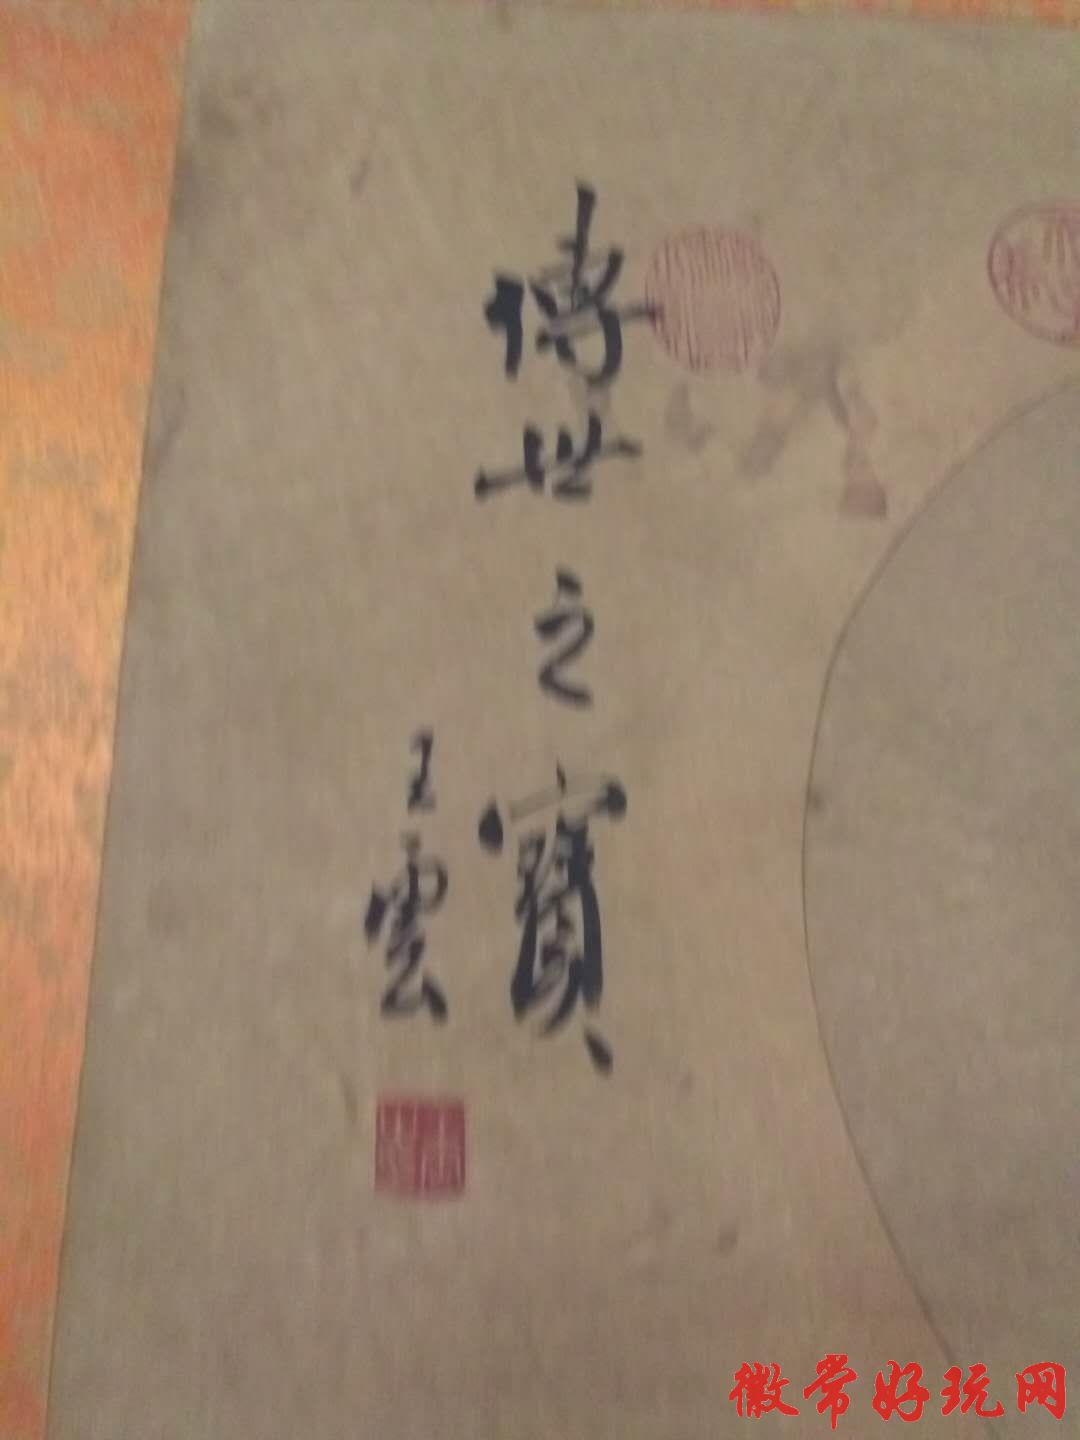 傳世之寶
王雲
徽常好玩网